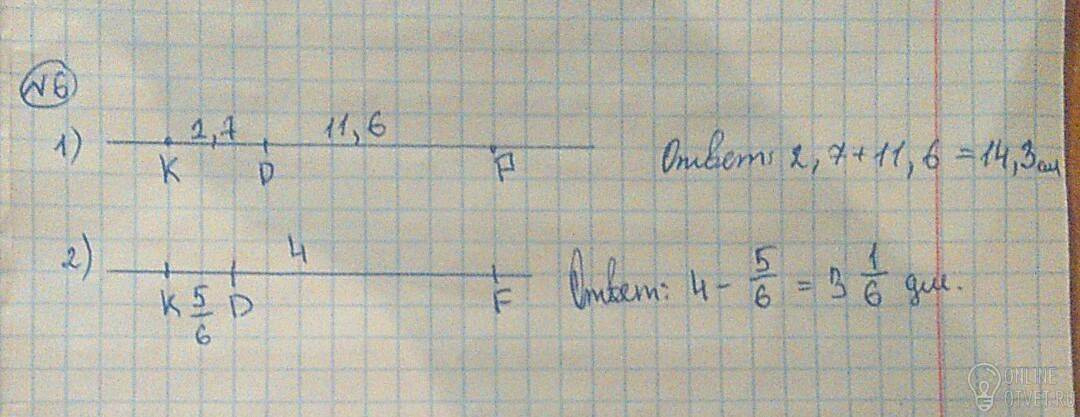 №6
1) 2,7 11,6
K D P Ответ: 2,7+11,6=14,3см
2) 4
K 5/6 D F Ответ: 4 - 5/6 = 3 1/6 дм.
ONLINE
OTVET.RU